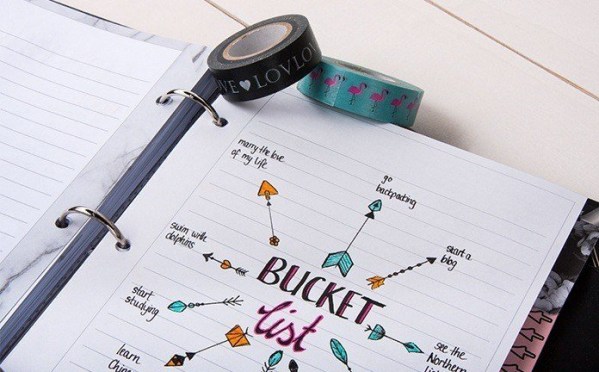 VE♥LOVLO
marry the love
of my life
go
backpacking
swim with
dolphins
start a
blog
BUCKET
list
start
studying
see the
Northern
learn